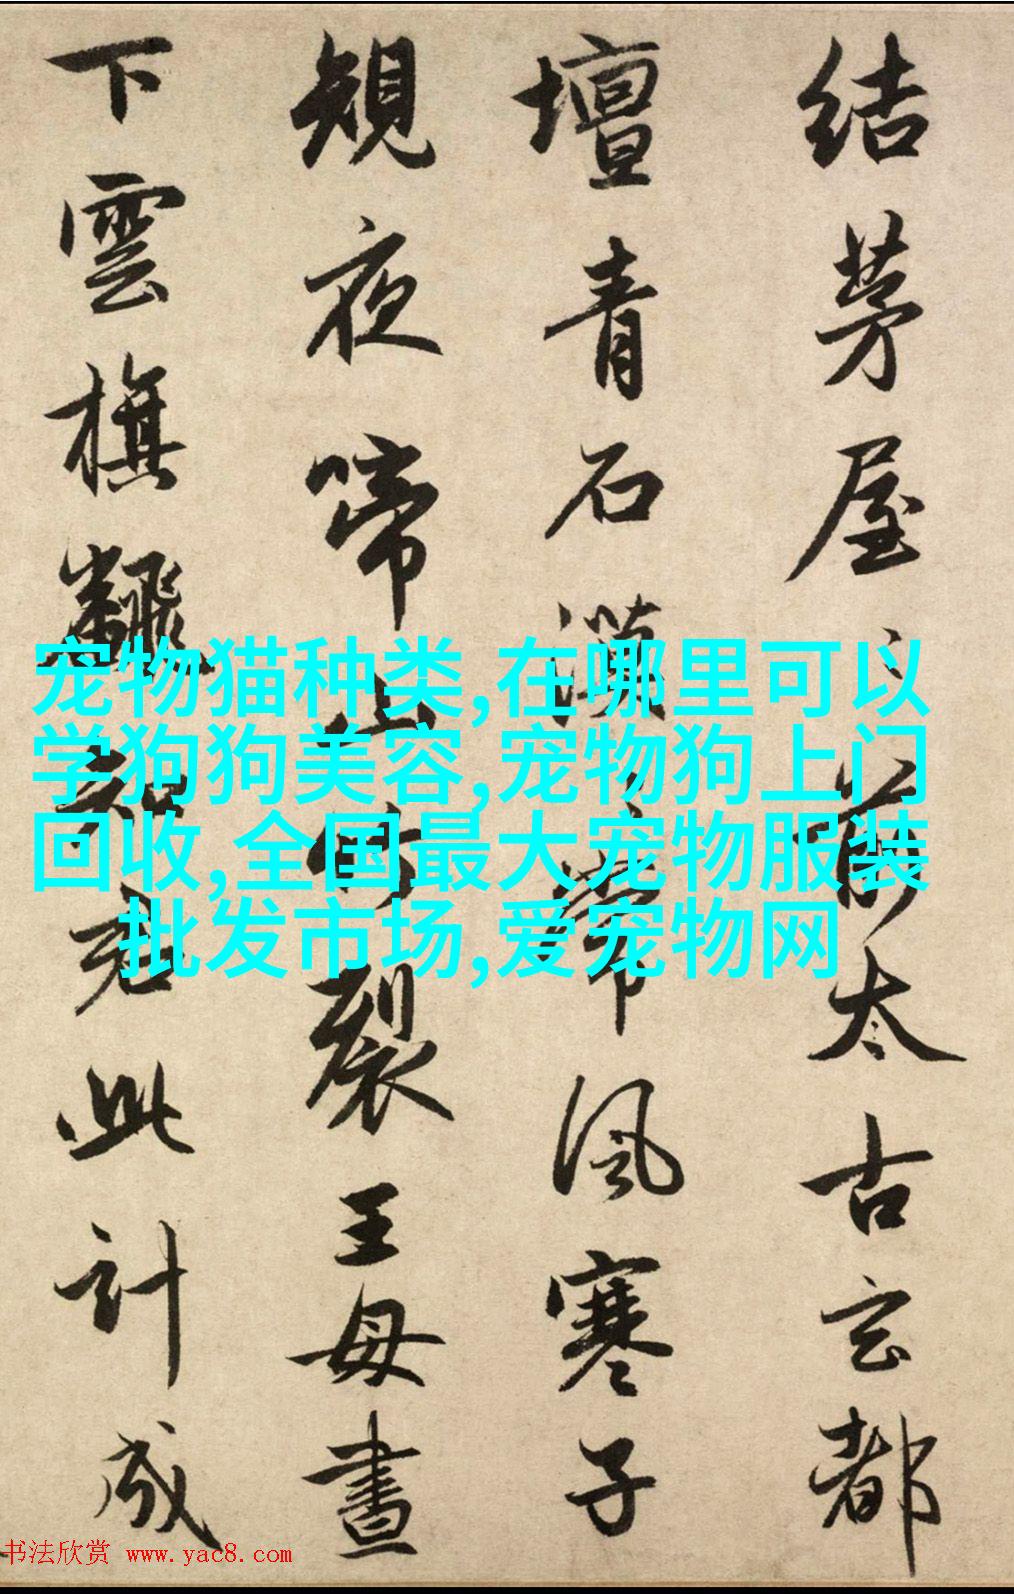 结茅屋々前太古玄都
壇青石漠々常風寒子
規夜啼山竹裂王母晝
下雲旗飜知君此計成
宠物猫种类,在哪里可以
学狗狗美容,宠物狗上门
回收,全国最大宠物服装
批发市场,爱宠物网
书法欣赏 www.yac8.com